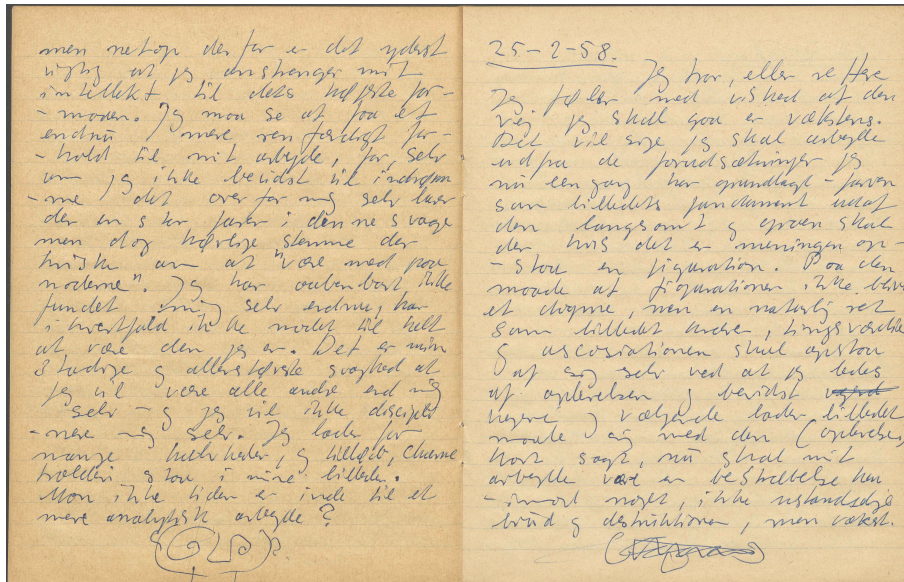 men netop derfor er det yderst
vigtig at jeg anstrenger mit
intellekt til dets højeste for-
-maaen. Jeg maa se at faa et
endnu mere renfærdigt for-
-hold til mit arbejde, for, selv
om jeg ikke bevidst vil indrøm
-me det overfor mig selv lurer
der en stor farer i denne svage
men dog hørlige stemme der
hviske om at "være med paa
noderne". Jeg har aabenbart ikke
fundet mig selv endnu, har
i hvertfald ikke modet til helt
at være den jeg er. Det er min
stadige og allerstørste svaghed at
jeg vil være alle andre end mig
selv - og jeg vil ikke discipli
-nere mig selv. Jeg lader for
mange halvheder, og tilløb,
trolderi staa i mine billeder.
Mon ikke tiden er inde til et
mere analytisk arbejde?
25-2-58.
Jeg tror, eller rettere
Jeg føler med vished at den
vej jeg skal gaa er vækstens.
Det vil sige jeg skal arbejde
udfra de forudsætninger jeg
nu een gang har grundlagt - farven
som billedets fundament udaf
den langsomt og skal
der hvis det er meningen op-
-staa en figuration. Paa den
maade at figurationen ikke blive
et dogme, men en naturlig ret
som billedet ændrer, tingsværdie
og ascosiationen skal opstaa
af sig selv ved at jeg ledes
af oplevelsen og bevidst
og vælgende lader billedet
maale sig med den (oplevelsen,
kort sagt, nu skal mit
arbejde være en bestræbelse hen
-imod noget, ikke ustandselige
brud og destruktioner, men vækst.